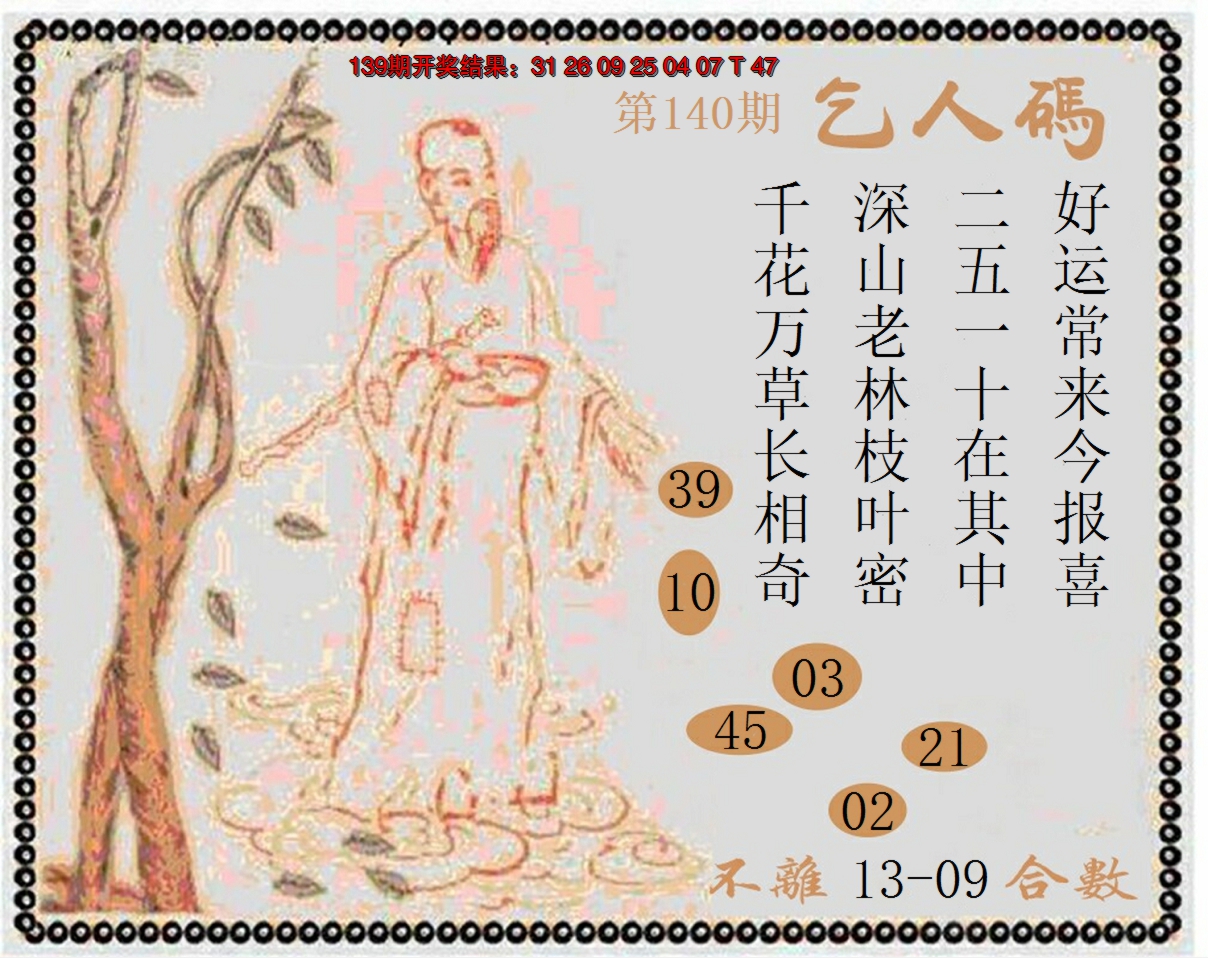 139期开奖结果：31 26 09 25 04 07 T 47
第140期 乞人碼
好运常来今报喜
二五一十在其中
深山老林枝叶密
千花万草长相奇
39
10
03
45
21
02
不離 13-09 合數